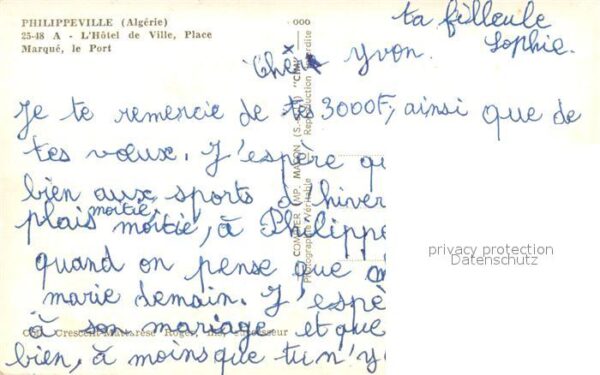 PHILIPPEVILLE (Algérie)
25-48 A - L'Hôtel de Ville, Place
Marqué, le Port
ta filleule
Sophie.
Cher Yvon.
Je te remercie de tes 3000F, ainsi que de
tes vœux. J'espère qu
bien aux sports d'hiver
plais moitié,
moitié, à Philippe
quand on pense que
marie demain. J'espè
à son mariage et que
bien, à moins que tu n'y
COMBIER IMP. MACON
Photographie Véritable - Reproduction Interdite
privacy protection
Datenschutz